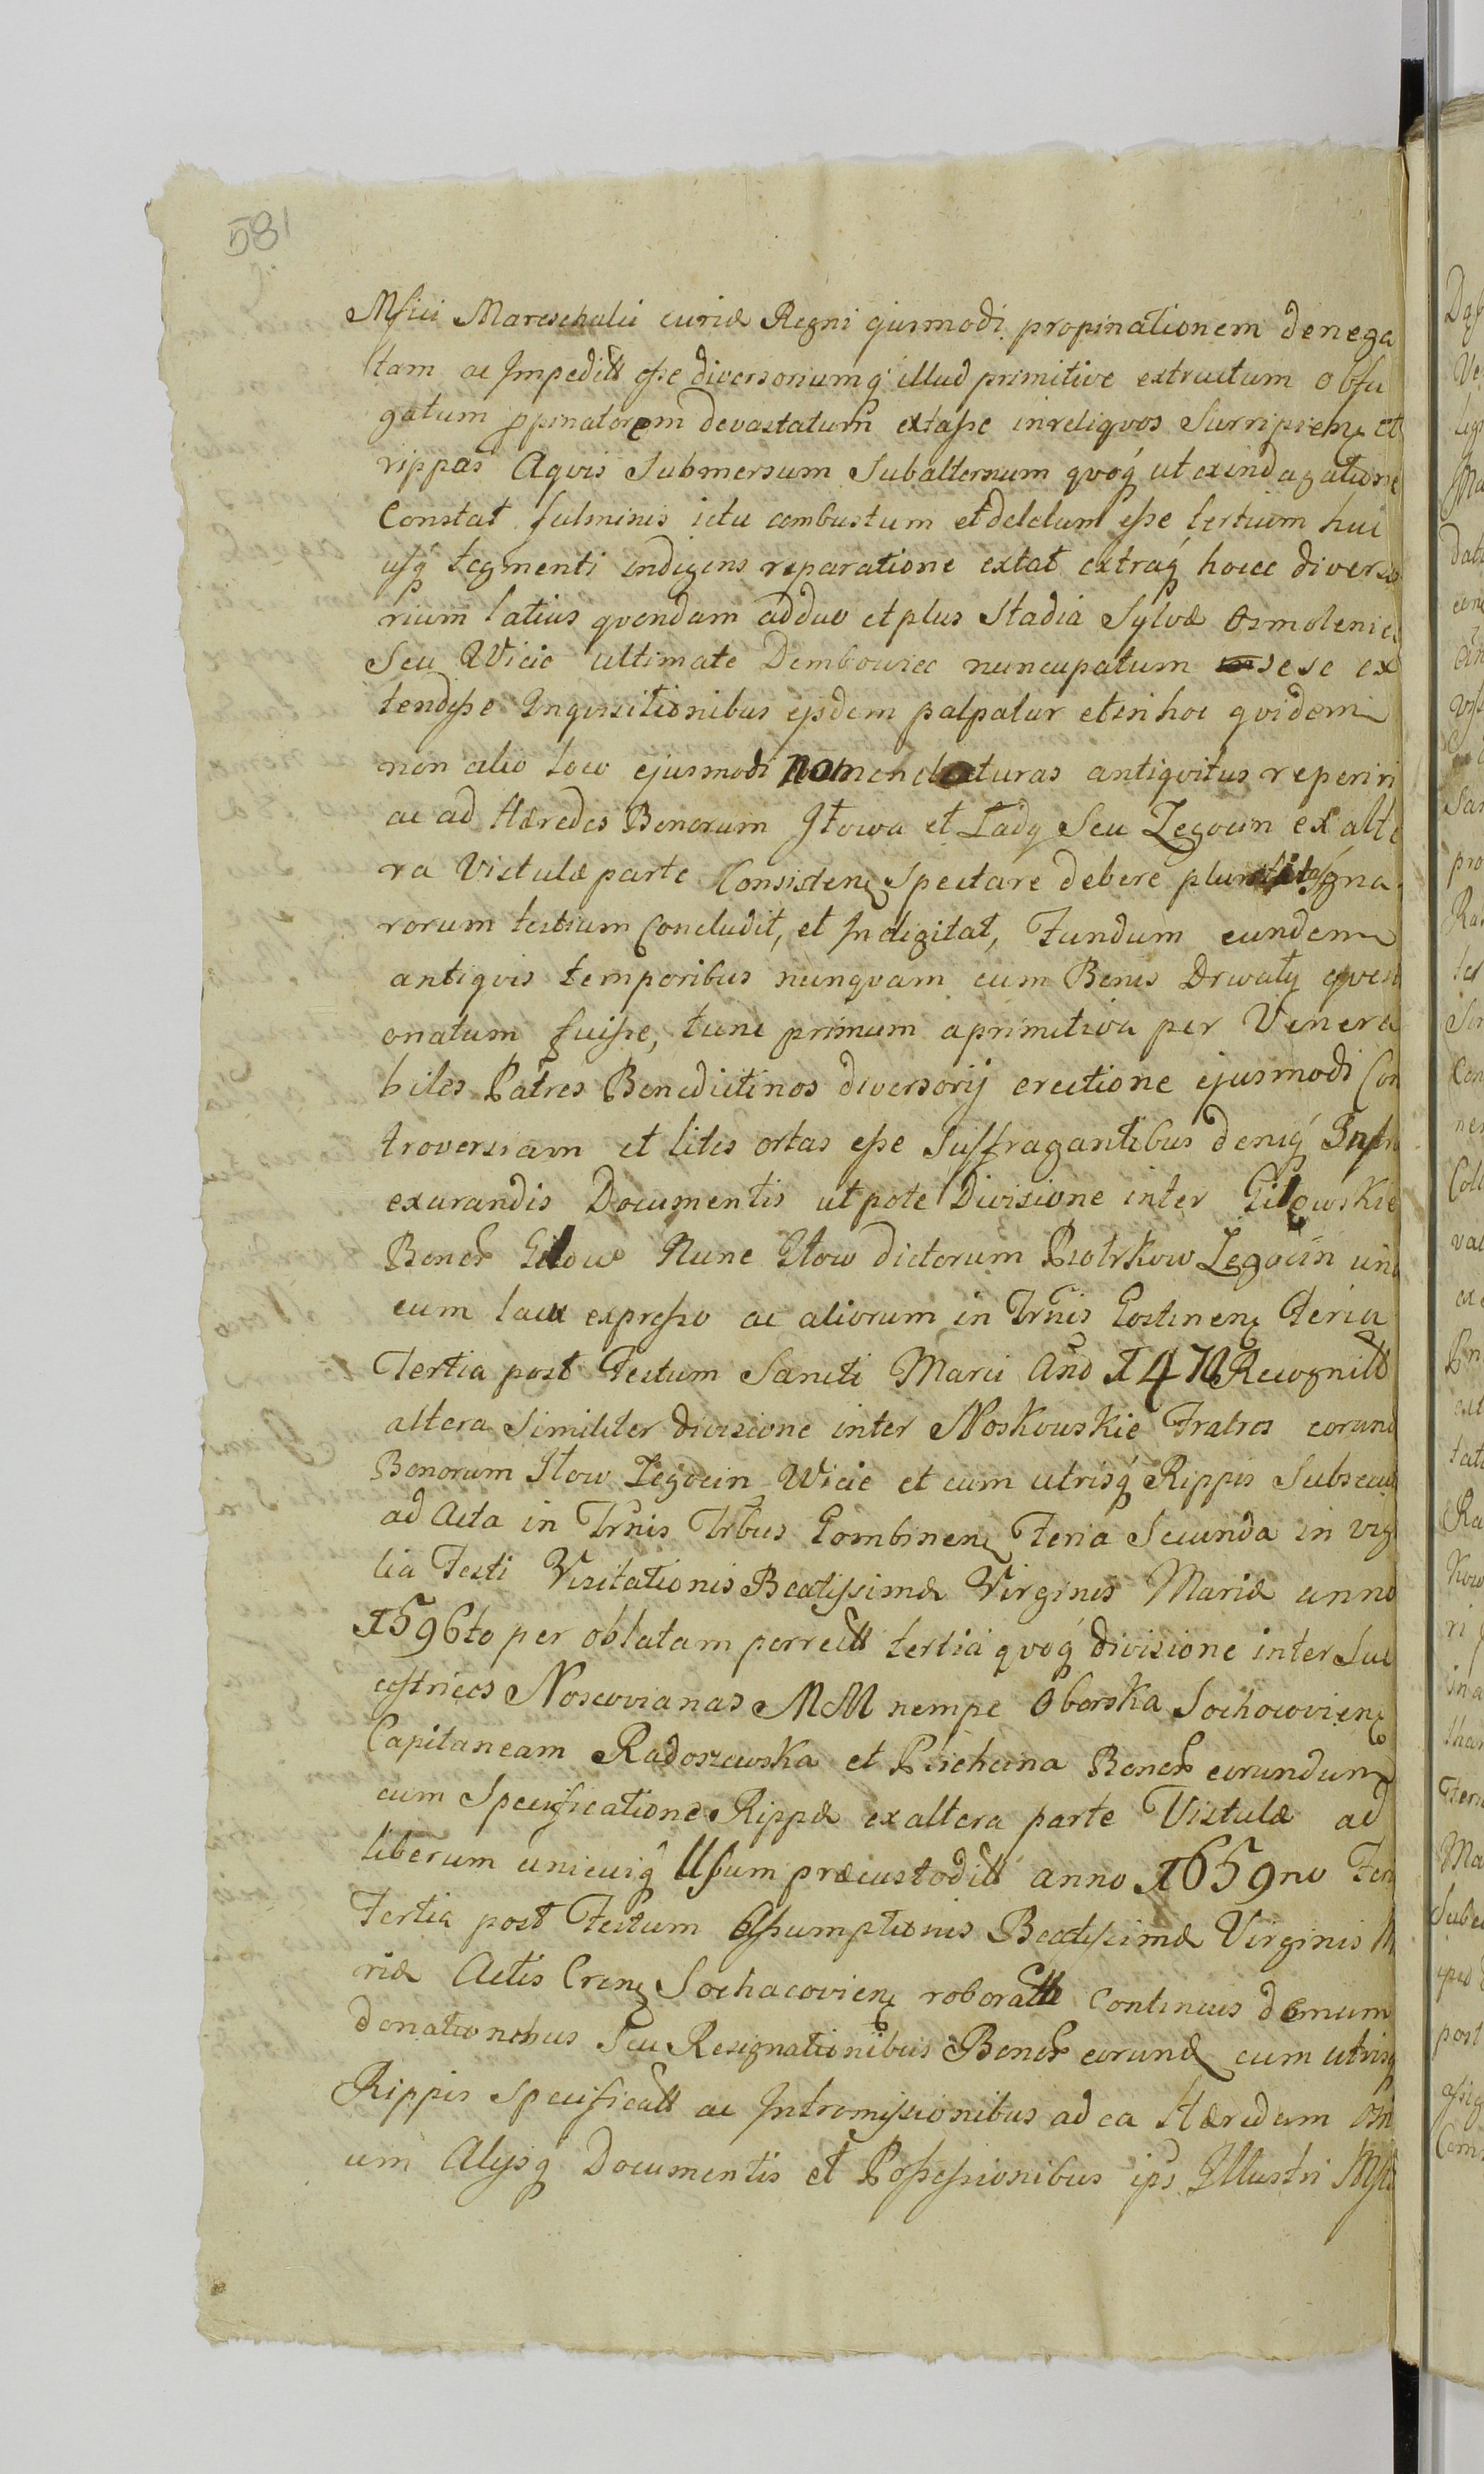 581
Mfici Mareschalii curiæ Regni ejusmodi propinationem denega
tam ac Impeditt esse diversoriumq illud primitive extructum obfu
gatum ppinatorem devastatum extasse in reliqvos Surripien et
rippas Aqvis Submersum Subalternum qvoq ut ex indagatione
Constat fulminis ictu combustum et deletum esse tertium huc
usq tegmenti indigens reparatione extat extraq hocce diverso
rium latius qvondam ad duo et plus Stadia Sylvæ Osmolenice
Seu Wicie ultimate Dembowiec nuncupatum sese ex
tendisse Inqvisitionibus ejsdem palpatur et in hoc qvidem
non alio loco ejusmodi nomenclaturas antiqvitus reperiri
ac ad Hæredes Bonorum Iłowa et Lady Seu Zegocin ex alte
ra Vistulæ parte Consisten Spectare debere
rorum testium Concludit, et Indigitat, Fundum eundem
antiqvis temporibus nunqvam cum Bonis Drwały qvesti
onatum fuisse, tunc primum a primitiva per Venera
biles Patres Benedictinos diversorij erectione ejusmodi Con
troversiam et lites ortas esse Suffragantibus deniq Infra
exarandis Documentis utpote Divisione inter Giłowskie
Bonor Giłow Nunc Iłow dictorum Piotrkow Zegocin una
cum lacu expresso ac aliorum in Trnis Gostinen Feria
Tertia post Festum Sancti Marci Ano 1470 Recognitt
altera Similiter divisione inter Noskowskie Fratres eorund
Bonorum Iłow Zegocin Wicie et cum utrisq Rippis Subsecut
ad Acta in Trnis Trbus Gombinen Feria Secunda in vigi
lia Festi Visitationis Beatissimæ Virginis Mariæ anno
1596to per oblatam porrectt tertia qvoq divisione inter Suc
cestrices Noscovianas MM nempe Oborska Sochacovien
Capitaneam Radoszewska et Bonor eorundum
cum Specificatione Rippæ ex altera parte Vistulæ ad
liberum unicuiq Usum præcustoditt anno 1659no Feria
Tertia post Festum Assumptionis Beatissimæ Virginis Ma
riæ Actis Cren Sochacovien roboratt Continuis demum
donationibus Seu Resignationibus Bonor eorund cum utrisq
Rippis specificatt ac Intromissionibus ad ea Hæredum
um Alijsq Documentis et Possessionibus ips Illustri Mfci